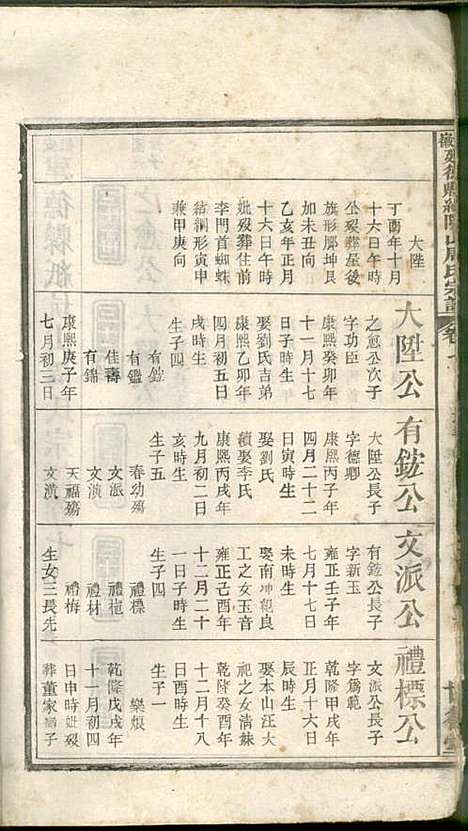 大陞
丁酉年十月
十六日午時
公歿葬屋後
旗形郎坤艮
加未丑向
乙亥年正月
十六日午時
妣歿葬住前
李門首蜘蛛
結網形寅申
兼甲庚向
大陞公
之愈公次子
字功臣
康熙癸卯年
十一月十七
日子時生
娶劉氏吉弟
康熙乙卯年
四月初五日
戌時生
生子四
有鎧
有鑑
佳壽
有錦
康熙庚子年
七月初三日
有鎧公
大陞公長子
字德卿
康熙丙子年
四月二十二
日寅時生
娶劉氏
續娶李氏
康熙丙戌年
九月初二日
亥時生
生子五
春幼殤
文派
文演
天福殤
文漬
文派公
有鎧公長子
字新玉
雍正壬子年
七月十七日
未時生
娶南冲親良
工之女玉音
雍正己酉年
十二月二十
一日子時生
生子四
禮標
禮植
禮材
禮栴
生女三長先
禮標公
文派公長子
字爲範
乾隆甲戌年
正月十六日
辰時生
娶本山汪大
祀之女清妹
乾隆癸酉年
十二月十八
日酉時生
生子一
樂烺
乾隆戊戌年
十一月初四
日申時妣歿
葬董家嘴子